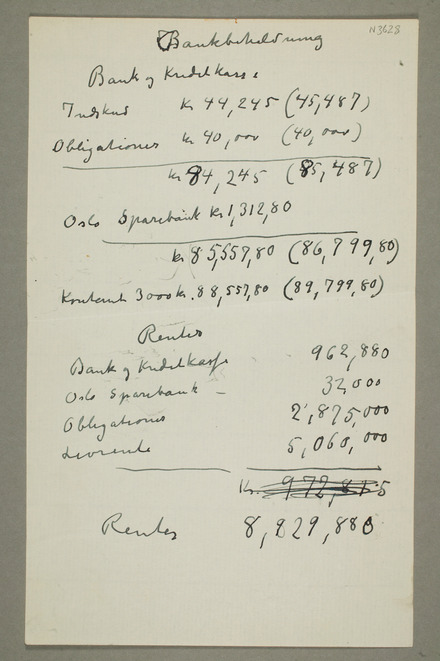 N3628
Bankbeholdning
Bank og Kreditkasse
Indskud kr 44,245 (45,487)
Obligationer kr 40,000 (40,000)
kr 84,245 (85,487)
Oslo Sparebank kr 1,312,80
kr 85,557,80 (86,799,80)
Kontant 3000 kr. 88,557,80 (89,799,80)
Renter
Bank og Kreditkasse 962,880
Oslo Sparebank – 32,000
Obligationer 2,875,000
Livrente 5,060,000
Kr. 972,815
Renter 8,929,880